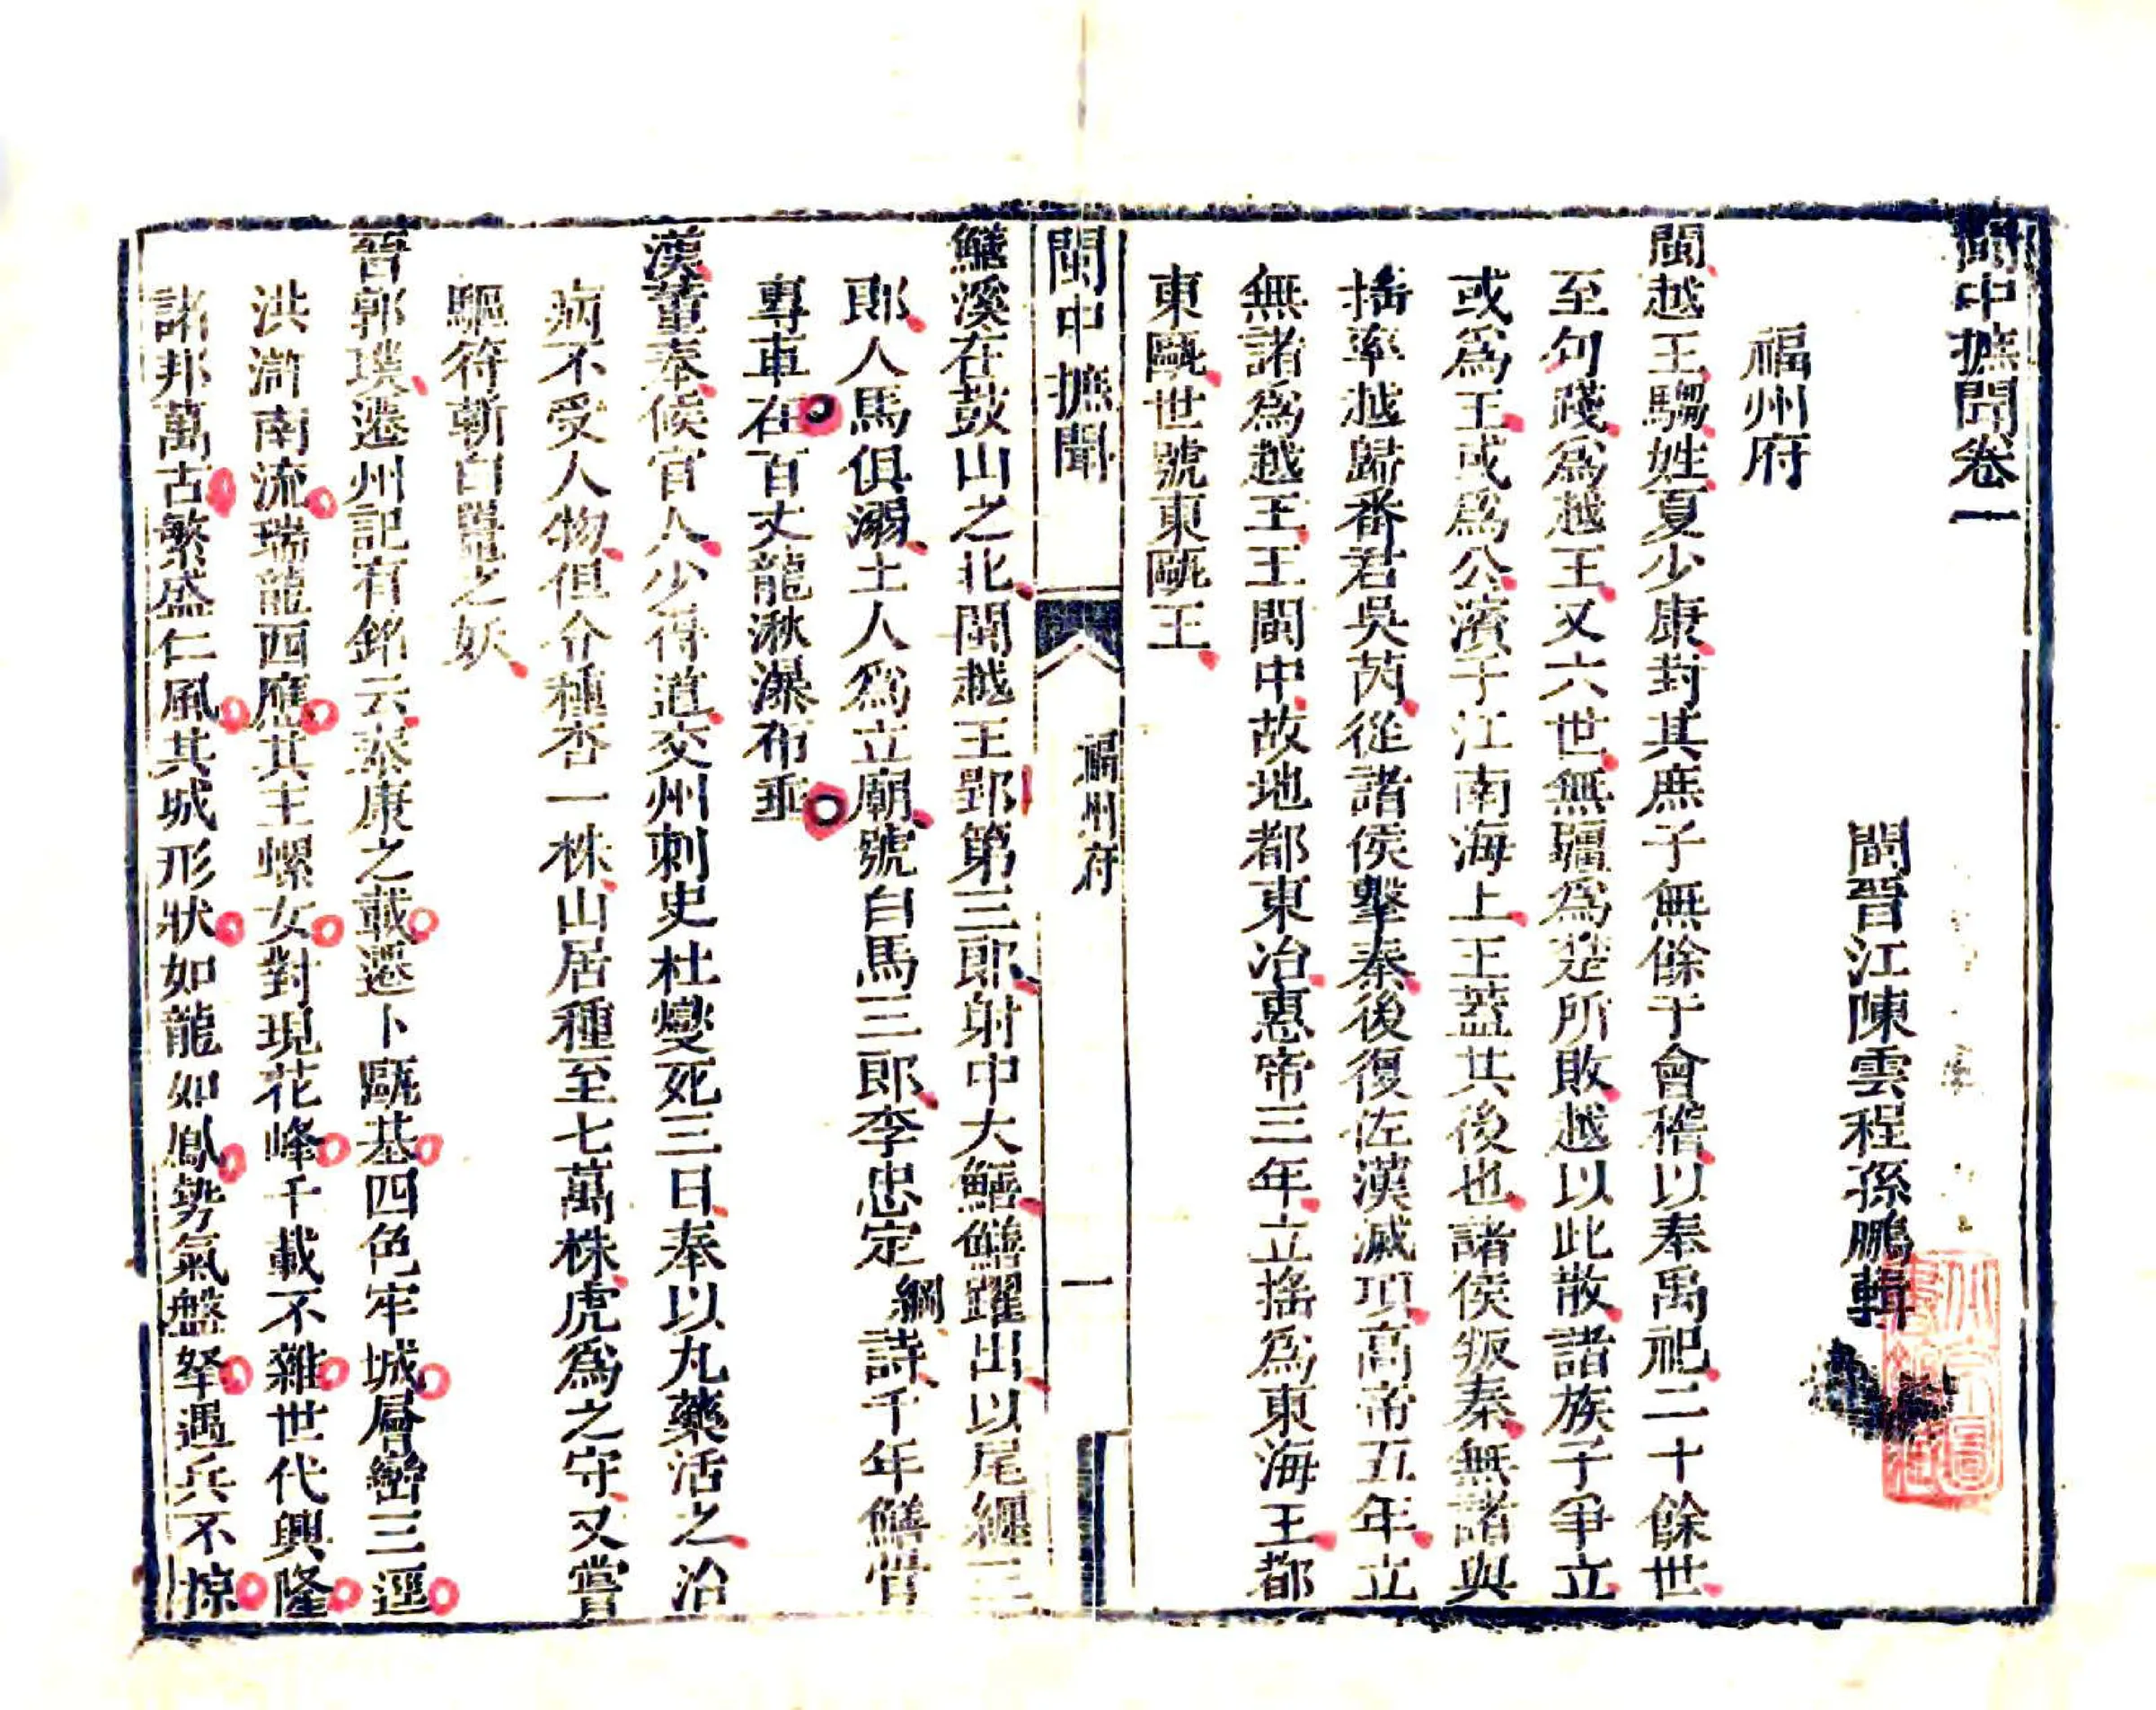 閩中摭聞卷一
閩晉江陳雲程孫鵬輯
福州府
閩越王騶姓夏少康封其庶子無餘于會稽以奉禹祀二十餘世
至句踐爲越王又六世無疆爲楚所敗越以此散諸族子爭立
或爲王或爲公濱于江南海上王蓋其後也諸侯叛秦無諸與
搖率越歸番君吳芮從諸侯擊秦後復佐漢滅項高帝五年立
無諸爲越王王閩中故地都東冶惠帝三年立搖爲東海王都
東甌世號東甌王
閩中摭聞
福州府
一
鱔溪在鼓山之北閩越王郢第三郎射中大鱔鱔躍出以尾纏三
郎人馬俱溺土人爲立廟號白馬三郎李忠定綱詩千年鱔骨
專車在百丈龍湫瀑布垂
漢董奉候官人少得道交州刺史杜燮死三日奉以丸藥活之治
病不受人物但令種杏一株山居種至七萬株虎爲之守又嘗
驅符斬白鼉之妖
晉郭璞遷州記有銘云泰康之載遷卜甌基四色牢城層巒三逕
洪瀚南流瑞龍西應其主螺女對現花峰千載不雜世代興隆
諸邦萬古繁盛仁風其城形狀如龍如鳳勢氣盤拏遇兵不掠